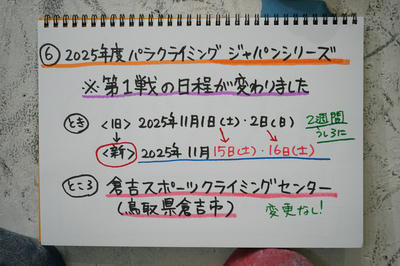 ⑥ 2025年度 パラクライミング ジャパンシリーズ
※第1戦の日程が変わりました
とき <旧> 2025年11月1日(土)・2日(日) 2週間
うしろに
↓
<新> 2025年 11月15日(土)・16日(土)
ところ 倉吉スポーツクライミングセンター
(鳥取県倉吉市) 変更なし!